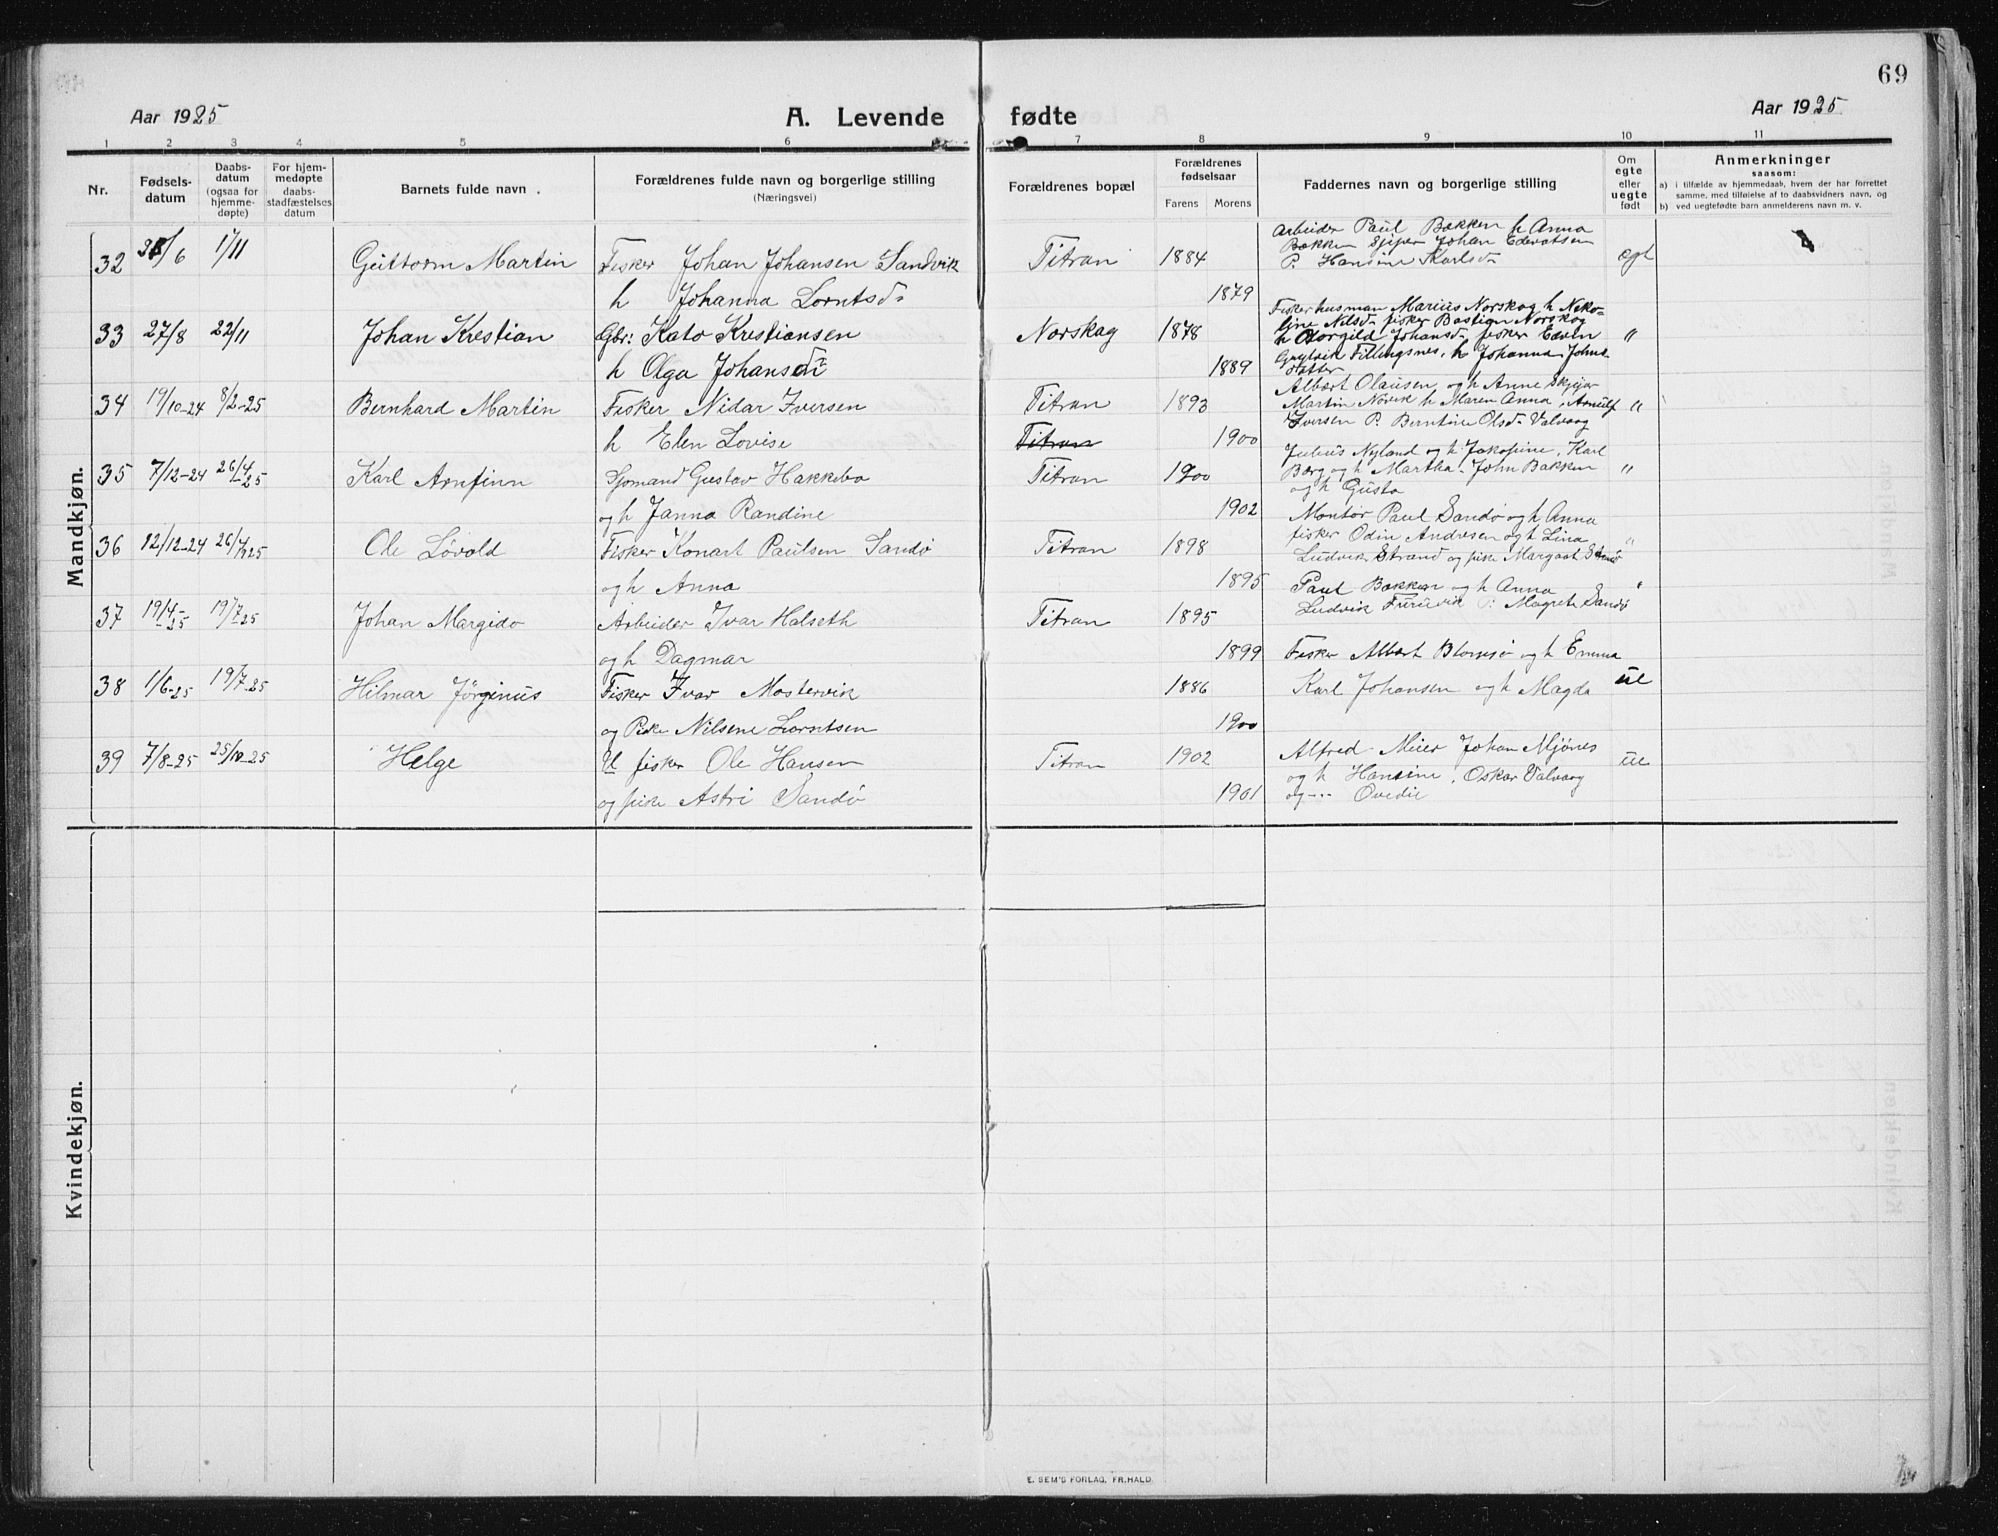 69
Aar 1925
A. Levende fødte
Aar 1925
1 2 3 4 5 6 7 8 9 10 11
Nr.
Fødsels-
datum
Daabs-
datum
(ogsaa for
hjemme-
døpte)
For hjem-
medøpte
daabs-
stadfæstelses
datum
Barnets fulde navn
Forældrenes fulde navn og borgerlige stilling
(Næringsvei)
Forældrenes bopæl
Forældrenes
fødselsaar
Farens Morens
Faddernes navn og borgerlige stilling
Om
egte
eller
uegte
født
Anmerkninger
saasom:
a) i tilfælde av hjemmedaab, hvem der har forrettet
samme, med tilføielse af to daabsvidners navn, og
b) ved uegtefødte barn anmelderens navn m. v.
Mandkjøn.
32 /6 1/11 Guttorm Martin Fisker Johan Johansen Sandvik Titran 1884 ægt
h Johanna Lorntsd. 1879
Arbeider Paul Bakken h Anna
Bakken Johan Edvartsen
P. Hansine Karlsd.
33 27/8 22/11 Johan Krestian Gbr: Kato Krestiansen Norskag 1878 "
h Olga Johansd. 1889
Fisker husman Marius Norskog h Niko-
line Nilsd. fisker Bastian Norskog
h Johansd. fisker Edvin
Fillingsnes, h Johanna Johns
datter
34 19/10-24 8/2-25 Bernhard Martin Fisker Nidar Iversen Titran 1893 "
h Elen Lovise Titran 1900
Albert Olausen og h Anne
Martin Norvik h Maren Anna, Arnulf
Iversen P. Berntine Olsd. Valvaag
35 7/12-24 26/4 25 Karl Arnfinn Sjømand Gustav Hakkebo Titran 1900 "
og h Janna Randine 1902
Julius Nyland og h Jakopine, Karl
Berg og h Martha. John Bakken
og h Gusta
36 12/12-24 26/4 25 Ole Løvold Fisker Konart Paulsen Sandø Titran 1898 "
og h Anna 1895
Montør Paul Sandø og h Anna
fisker Odin Andresen og h Lina
Ludvik Strand og pike Margaat
37 19/4-25 19/7-25 Johan Margido Arbeider Ivar Halseth Titran 1895 "
og h Dagmar 1899
Paul Bakken og h Anna
Ludvik Furuvik P: Magrete Sandø
38 1/6-25 19/7-25 Hilmar Jörginus Fisker Ivar Mostervik 1886 ue
og Pike Nilsine Lorntsen 1900
Fisker Albert Blomsø og h Emma
Karl Johansen og h Magda
39 7/8-25 25/10-25 Helge U fisker Ole Hansen Titran 1902 ue
og pike Astri Sandø 1901
Alfred Meier Johan Mjönes
og h Hansine, Oskar Valvaag
og --- Ovedie
Kvindekjøn.
E. SEM'S FORLAG, FR.HALD.